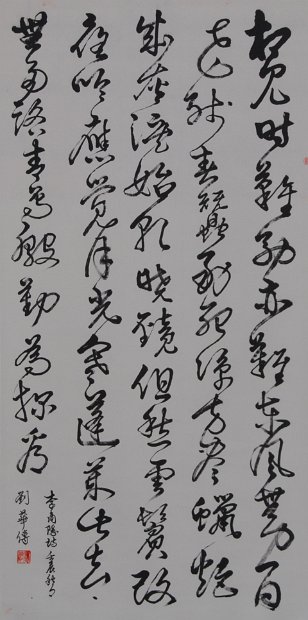 相見時難別亦難東風無力百
花殘春蠶到死絲方盡蠟炬
成灰淚始乾曉鏡但愁雲鬢改
夜吟應覺月光寒蓬萊此去
無多路青鳥殷勤為探看
李商隱詩 壬辰秋月
劉華